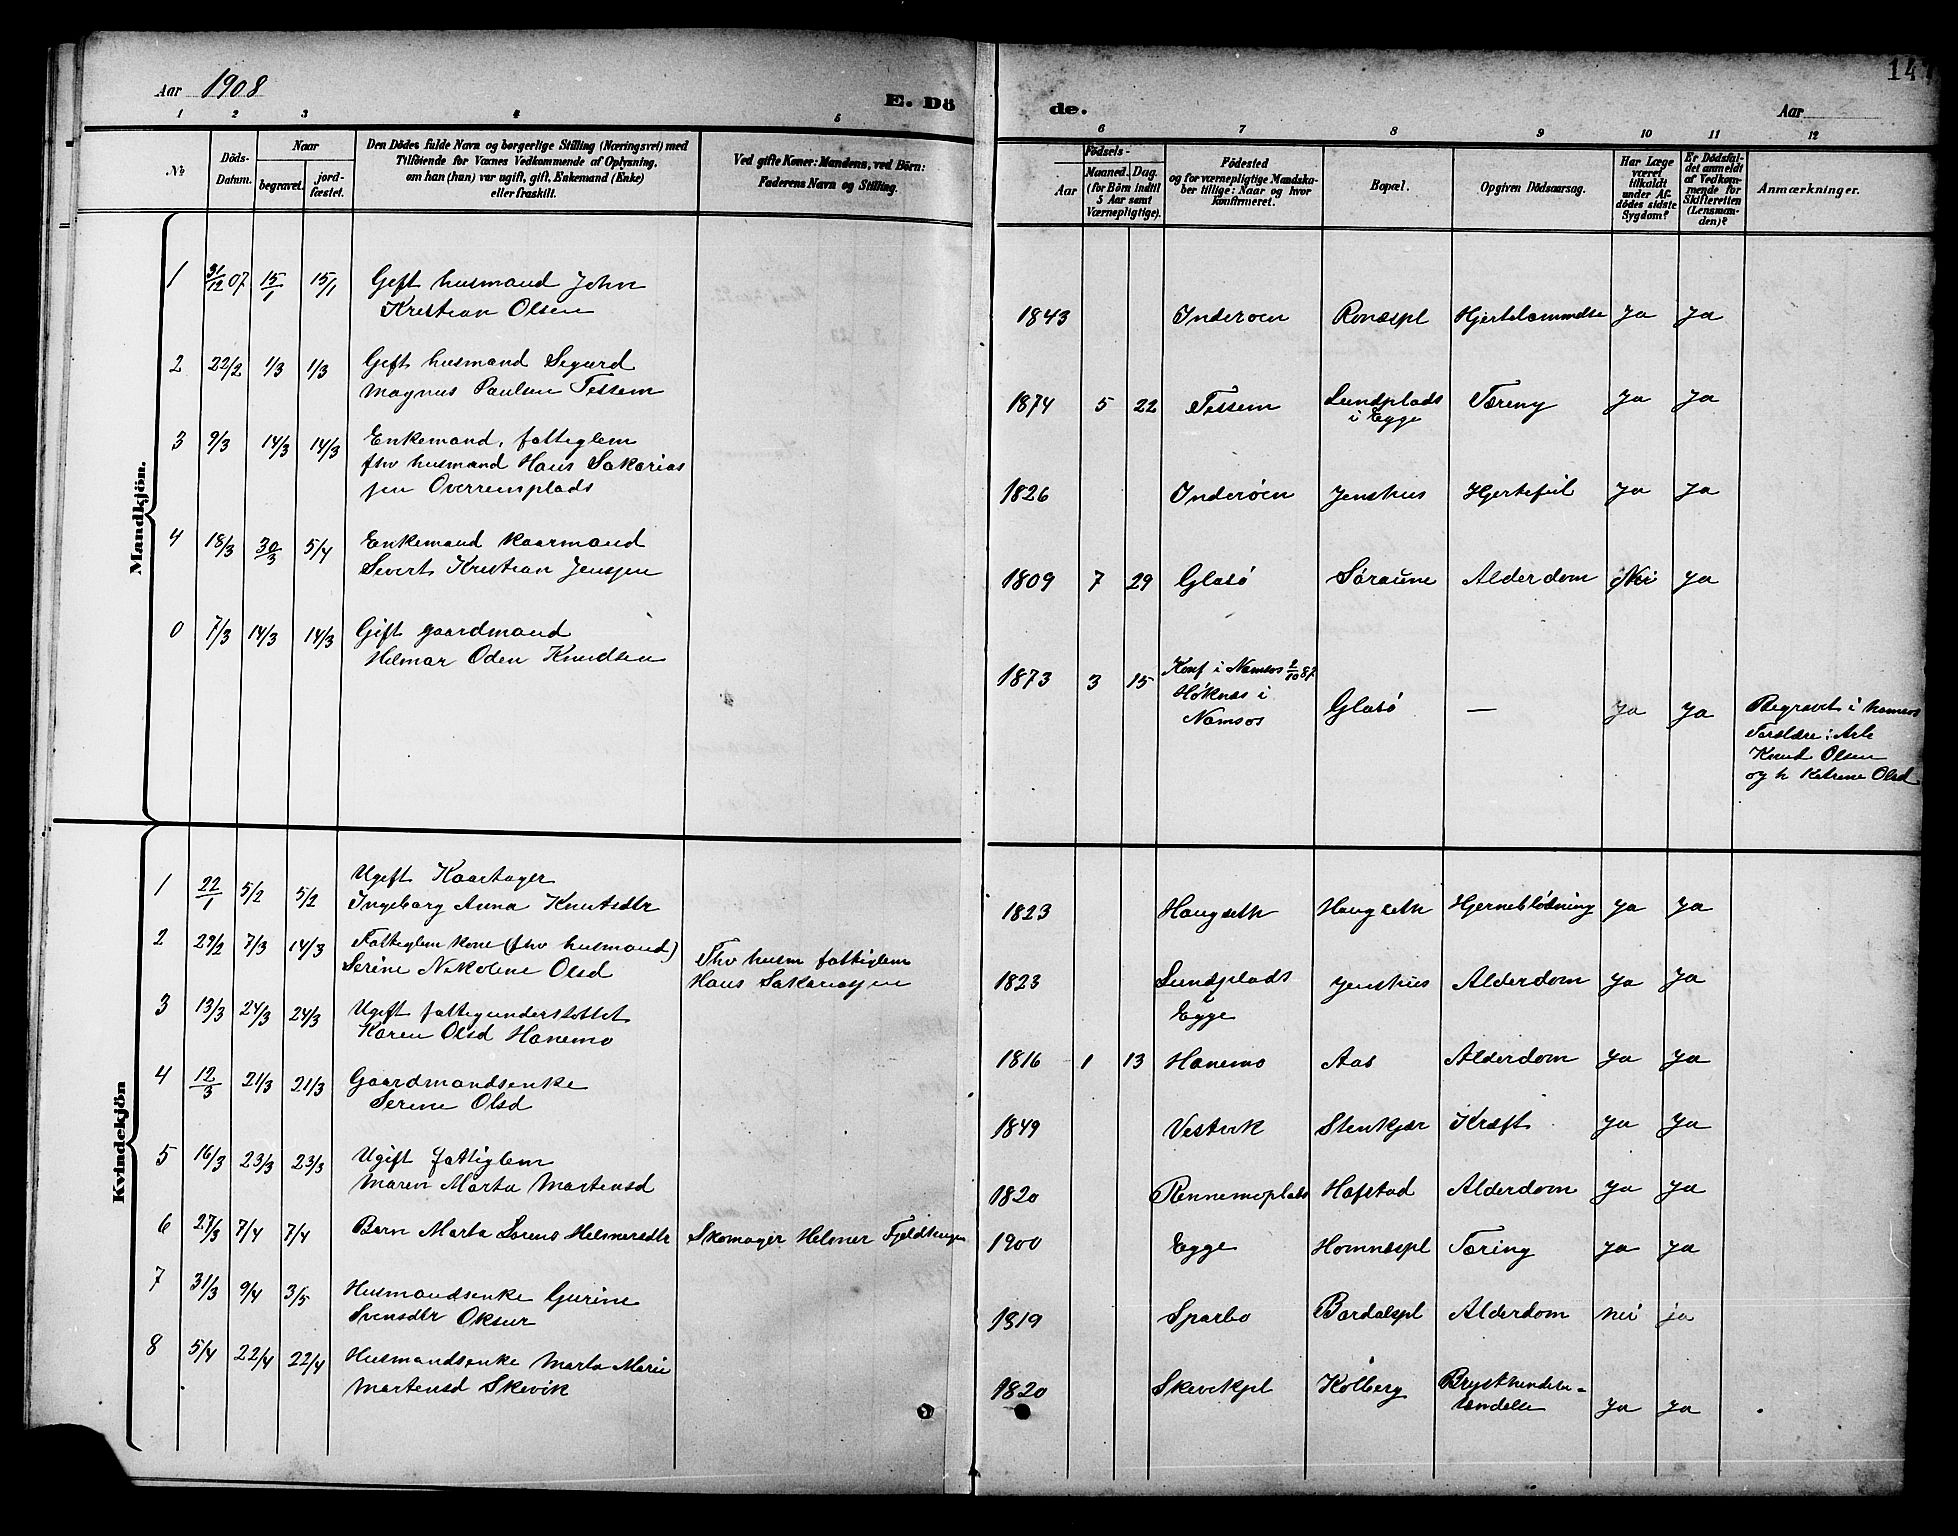 Aar 1908
E. Dö
de.
Aar
147
1 2 3 4 5
6 7 8 9 10 11 12
No
Döds-Datum.
Naar
begravet. jordfæstet.
Den Dödes fulde Navn og borgerlige Stilling (Næringsvei) med
Tilföiende for Voxnes Vedkommende af Oplysning,
om han (hun) var ugift, gift, Enkemand (Enke)
eller fraskilt.
Ved gifte Koner: Mandens, ved Börn:
Faderens Navn og Stilling.
Födsels-
Aar
Maaned. Dag.
(for Börn indtil
5 Aar samt
Værnepligtige).
Födested
og for værnepligtige Mandskaber tillige: Naar og hvor
konfirmeret.
Bopæl.
Opgiven Dödsaarsag.
Har Læge
været
tilkaldt
under Afdödes sidste
Sygdom?
Er Dödsfaldet anmeldt
af Vedkommende for
Skifteretten
(Lensmanden)?
Anmærkninger.
Mandkjön.
1 31/12 07 15/1 15/1 Gift husmand John
Kristian Olsen
1843 Inderøen Ronæspl Hjertelammelse Ja Ja
2 22/2 1/3 1/3 Gift husmand Sigurd
Magnus Paulsen Tessem
1874 5 22 Tessem Lundplads
i Egge Tæring Ja Ja
3 9/3 14/3 14/3 Enkemand, fattiglem
fhv husmand Hans Sakarias
sen Overreinplads
1826 Inderøen Jenshus Hjertefeil Ja Ja
4 18/3 30/3 5/4 Enkemand Kaarmand
Sivert Kristian Jenssen
1809 7 29 Glasø Søraune Alderdom Nei Ja
0 7/3 14/3 14/3 Gift gaardmand
Hilmar Oden Knudsen
1873 3 15 Konf i Namsos 2/10 87.
Høknæs i
Namsos
Glasø — Ja Ja
Begravet i Namsos
Forældre: Arb
Knud Olsen
og h Katrine Olsd
Kvindekjön
1 22/1 5/2 5/2 Ugift Kaartager
Ingeborg Anna Knutsdtr
1823 Haugseth Haugseth Hjerneblødning Ja Ja
2 29/2 7/3 14/3 Fattiglem kone (fhv husmand)
Serine Nikoline Olsd
Fhv husm fattiglem
Hans Sakariassen
1823 Lundplads
i
Egge Jenshus Alderdom Ja Ja
3 13/3 24/3 24/3 Ugift fattigunderstøttet
Karen Olsd Hanemo
1816 1 13 Hanemo Aas Alderdom Ja Ja
4 12/3 21/3 21/3 Gaardmandsenke
Serine Olsd
1849 Vestvik Stenkjær Kræft Ja Ja
5 16/3 23/3 23/3 Ugift fattiglem
Maren Marta Martensd
1820 Rennemoplads Hafstad Alderdom Ja Ja
6 27/3 7/4 7/4 Barn Marta Lorens Helmersdtr
Skomager Helmer
1900 Egge Homnæspl Tæring Ja Ja
7 31/3 9/4 3/5 Husmandsenke Gurine
Svensdtr Oksur
1819 Sparbo Bardalspl Alderdom nei ja
8 5/4 22/4 22/4 Husmandsenke Marta Marie
Martensd Skevik
1820 Skevikpl Kolberg Ja Ja